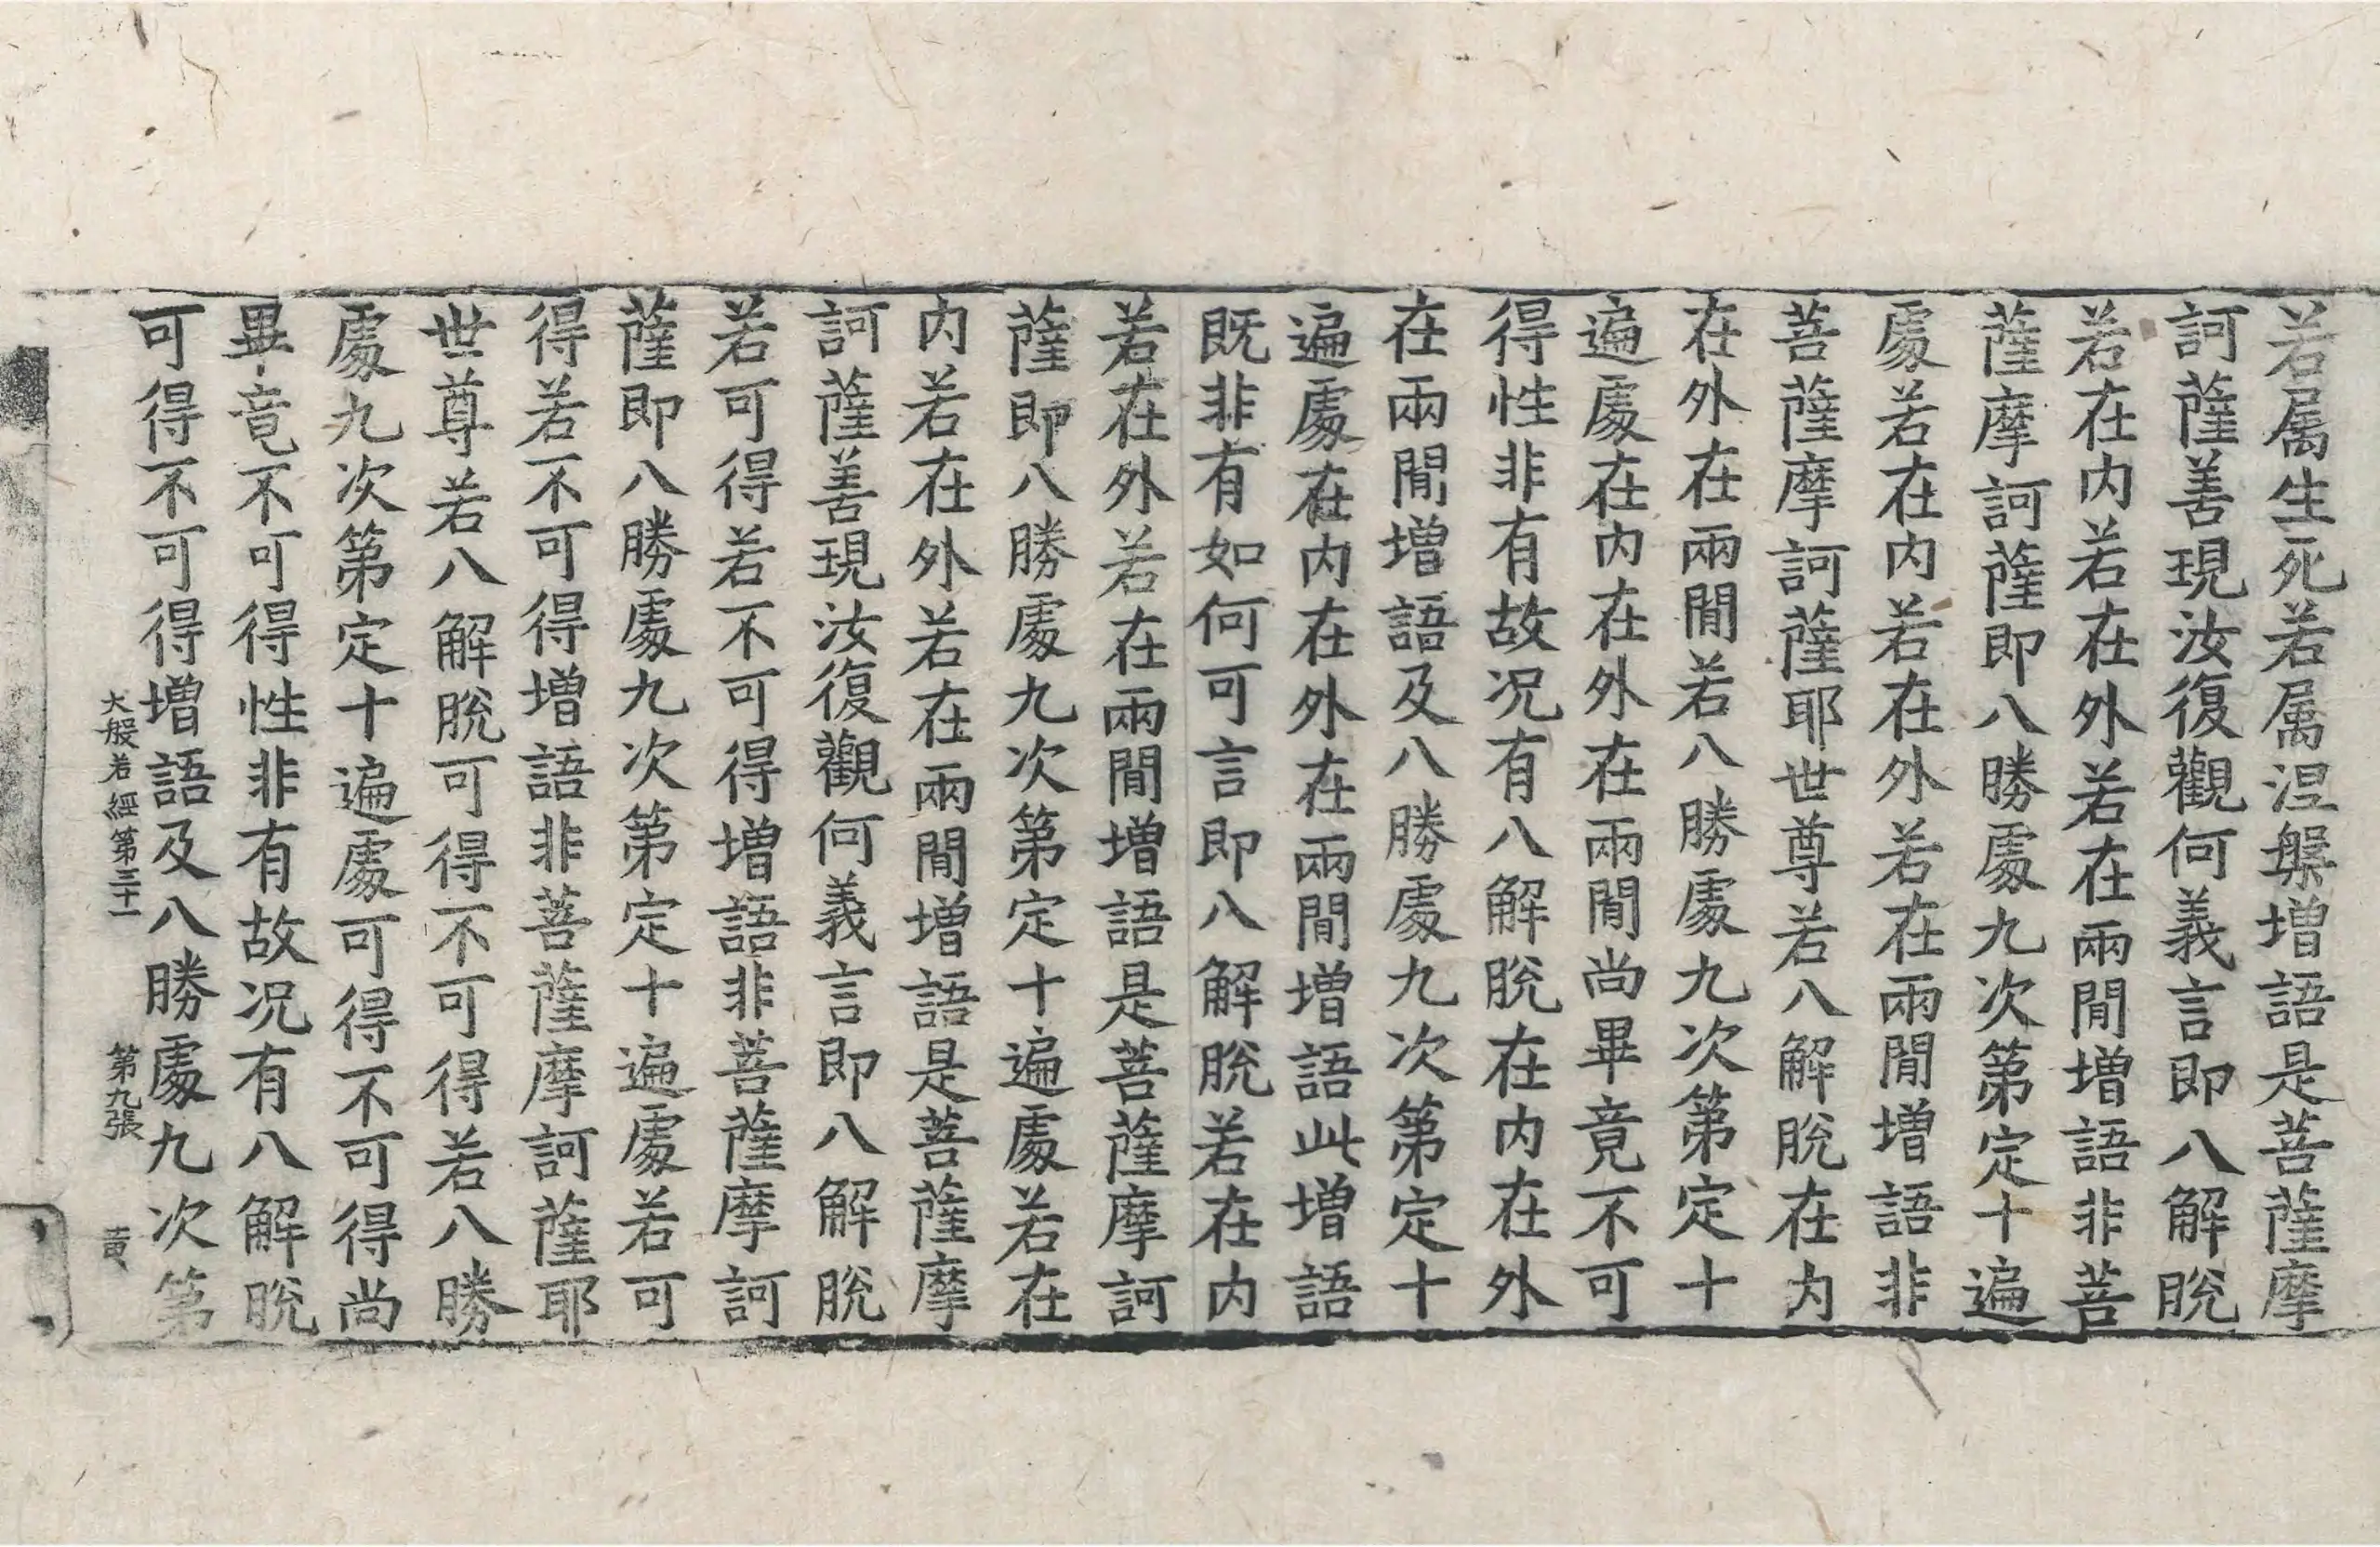 若属生死若属涅槃增語是菩薩摩
訶薩善現汝復觀何義言即八解脫
若在内若在外若在兩閒增語非菩
薩摩訶薩即八勝處九次第定十遍
處若在内若在外若在兩閒增語非
菩薩摩訶薩耶世尊若八解脫在内
在外在兩閒若八勝處九次第定十
遍處在内在外在兩閒尚畢竟不可
得性非有故况有八解脫在内在外
在兩閒增語及八勝處九次第定十
遍處在内在外在兩閒增語此增語
既非有如何可言即八解脫若在内
若在外若在兩閒增語是菩薩摩訶
薩即八勝處九次第定十遍處若在
内若在外若在兩閒增語是菩薩摩
訶薩善現汝復觀何義言即八解脫
若可得若不可得增語非菩薩摩訶
薩即八勝處九次第定十遍處若可
得若不可得增語非菩薩摩訶薩耶
世尊若八解脫可得不可得若八勝
處九次第定十遍處可得不可得尚
畢竟不可得性非有故况有八解脫
可得不可得增語及八勝處九次第
大般若經第三十一 第九張 黄